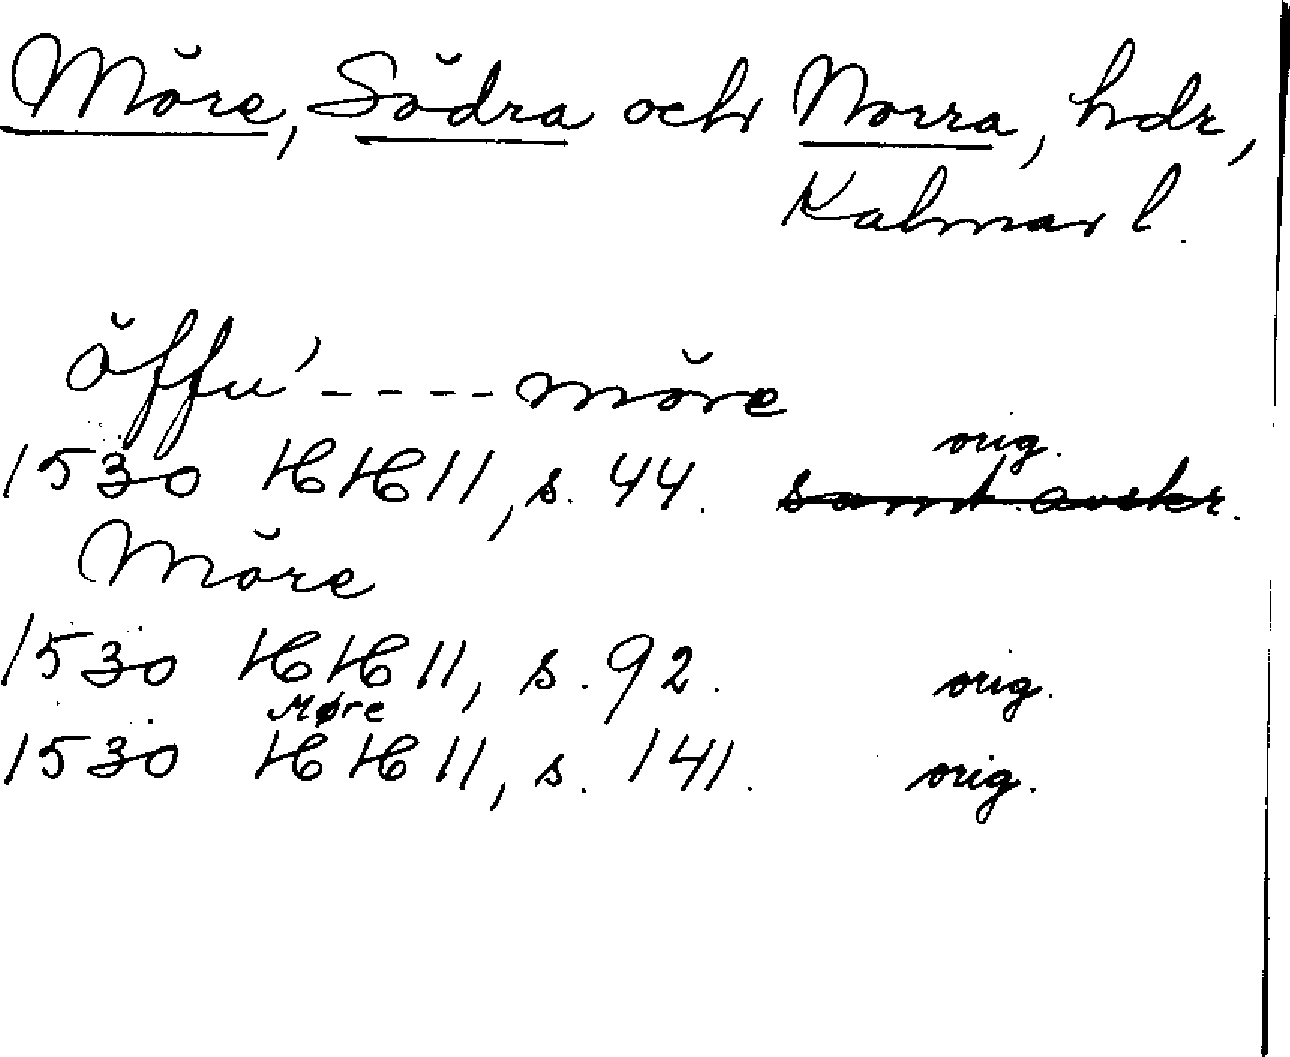 Möre, Södra och Norra, hdr,
Kalmar l.
öffu' - - - - möre
orig.
1530 HH 11, s. 44. samt. avskr.
Möre
1530 HH 11, s. 92. orig.
Møre
1530 HH 11, s. 141. orig.